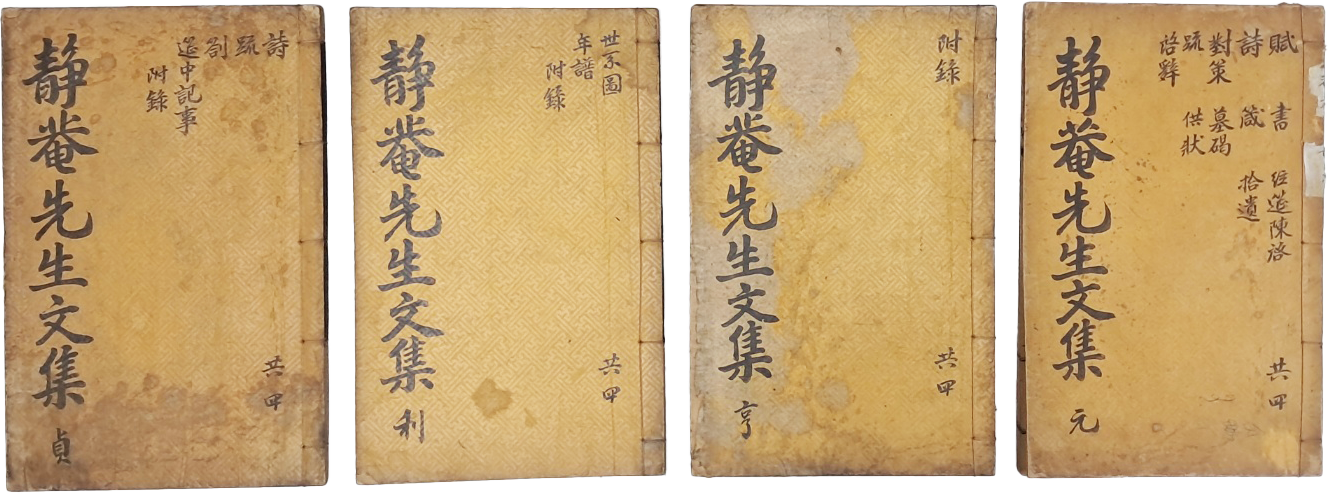 賦 書 經筵陳啓
詩 箴 拾遺
對策 墓碣
疏 供狀
啓辭
共四
静菴先生文集 元
附錄
共四
静菴先生文集 亨
世系圖
年譜
附錄
共四
静菴先生文集 利
詩
疏
箚
筵中記事
附錄
共四
静菴先生文集 貞